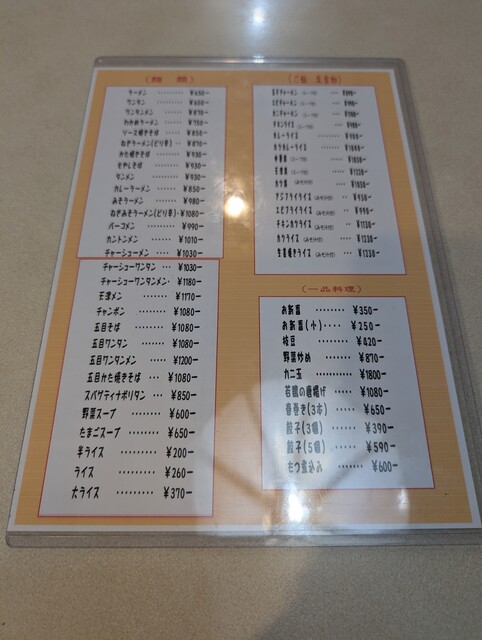 (麺類)
ラーメン ‥‥ ¥650-
ワンタン ‥‥ ¥600-
ワンタンメン ‥‥ ¥870-
わかめラーメン ‥‥ ¥750-
ソース焼きそば ‥‥ ¥850-
ねぎラーメン(ピリ辛) ‥ ¥870-
かた焼きそば ‥‥ ¥930-
もやしそば ‥‥ ¥930-
タンメン ‥‥ ¥930-
カレーラーメン ‥‥ ¥850-
みそラーメン ‥‥ ¥980-
ねぎみそラーメン(ピリ辛)‥¥1080-
パーコーメン ‥‥ ¥990-
カントンメン ‥‥ ¥1010-
チャーシューメン ‥‥ ¥1030-
チャーシューワンタン ‥‥ ¥1030-
チャーシューワンタンメン‥‥ ¥1180-
天津メン ‥‥‥ ¥1170-
チャンポン ‥‥‥ ¥1080-
五目そば ‥‥‥ ¥1080-
五目ワンタン ‥‥‥ ¥1080-
五目ワンタンメン ‥‥ ¥1200-
五目かた焼きそば ‥ ¥1080-
スパゲティナポリタン ‥ ¥850-
野菜スープ ‥‥‥ ¥600-
たまごスープ ‥‥‥ ¥650-
半ライス ‥‥‥ ¥200-
ライス ‥‥‥ ¥260-
大ライス ‥‥‥ ¥370-
カレーライス
カツカレーライス
アジフライライス(みそ汁付)
エビフライライス(みそ汁付)
チキンカツライス(みそ汁付) ‥ ¥1130-
カツライス(みそ汁付) ‥‥ ¥1230-
生姜焼きライス(みそ汁付) ‥ ¥1230-
(一品料理)
お新香 ‥‥‥‥ ¥350-
お新香(小)‥‥ ¥250-
枝豆 ‥‥‥‥ ¥420-
野菜炒め ‥‥‥ ¥870-
カニ玉 ‥‥‥‥ ¥1800-
若鶏の唐揚げ ‥‥ ¥1080-
春巻き(3本) ‥‥ ¥650-
餃子(3個) ‥‥‥ ¥390-
餃子(5個) ‥‥‥ ¥590-
もつ煮込み ‥‥‥ ¥600-